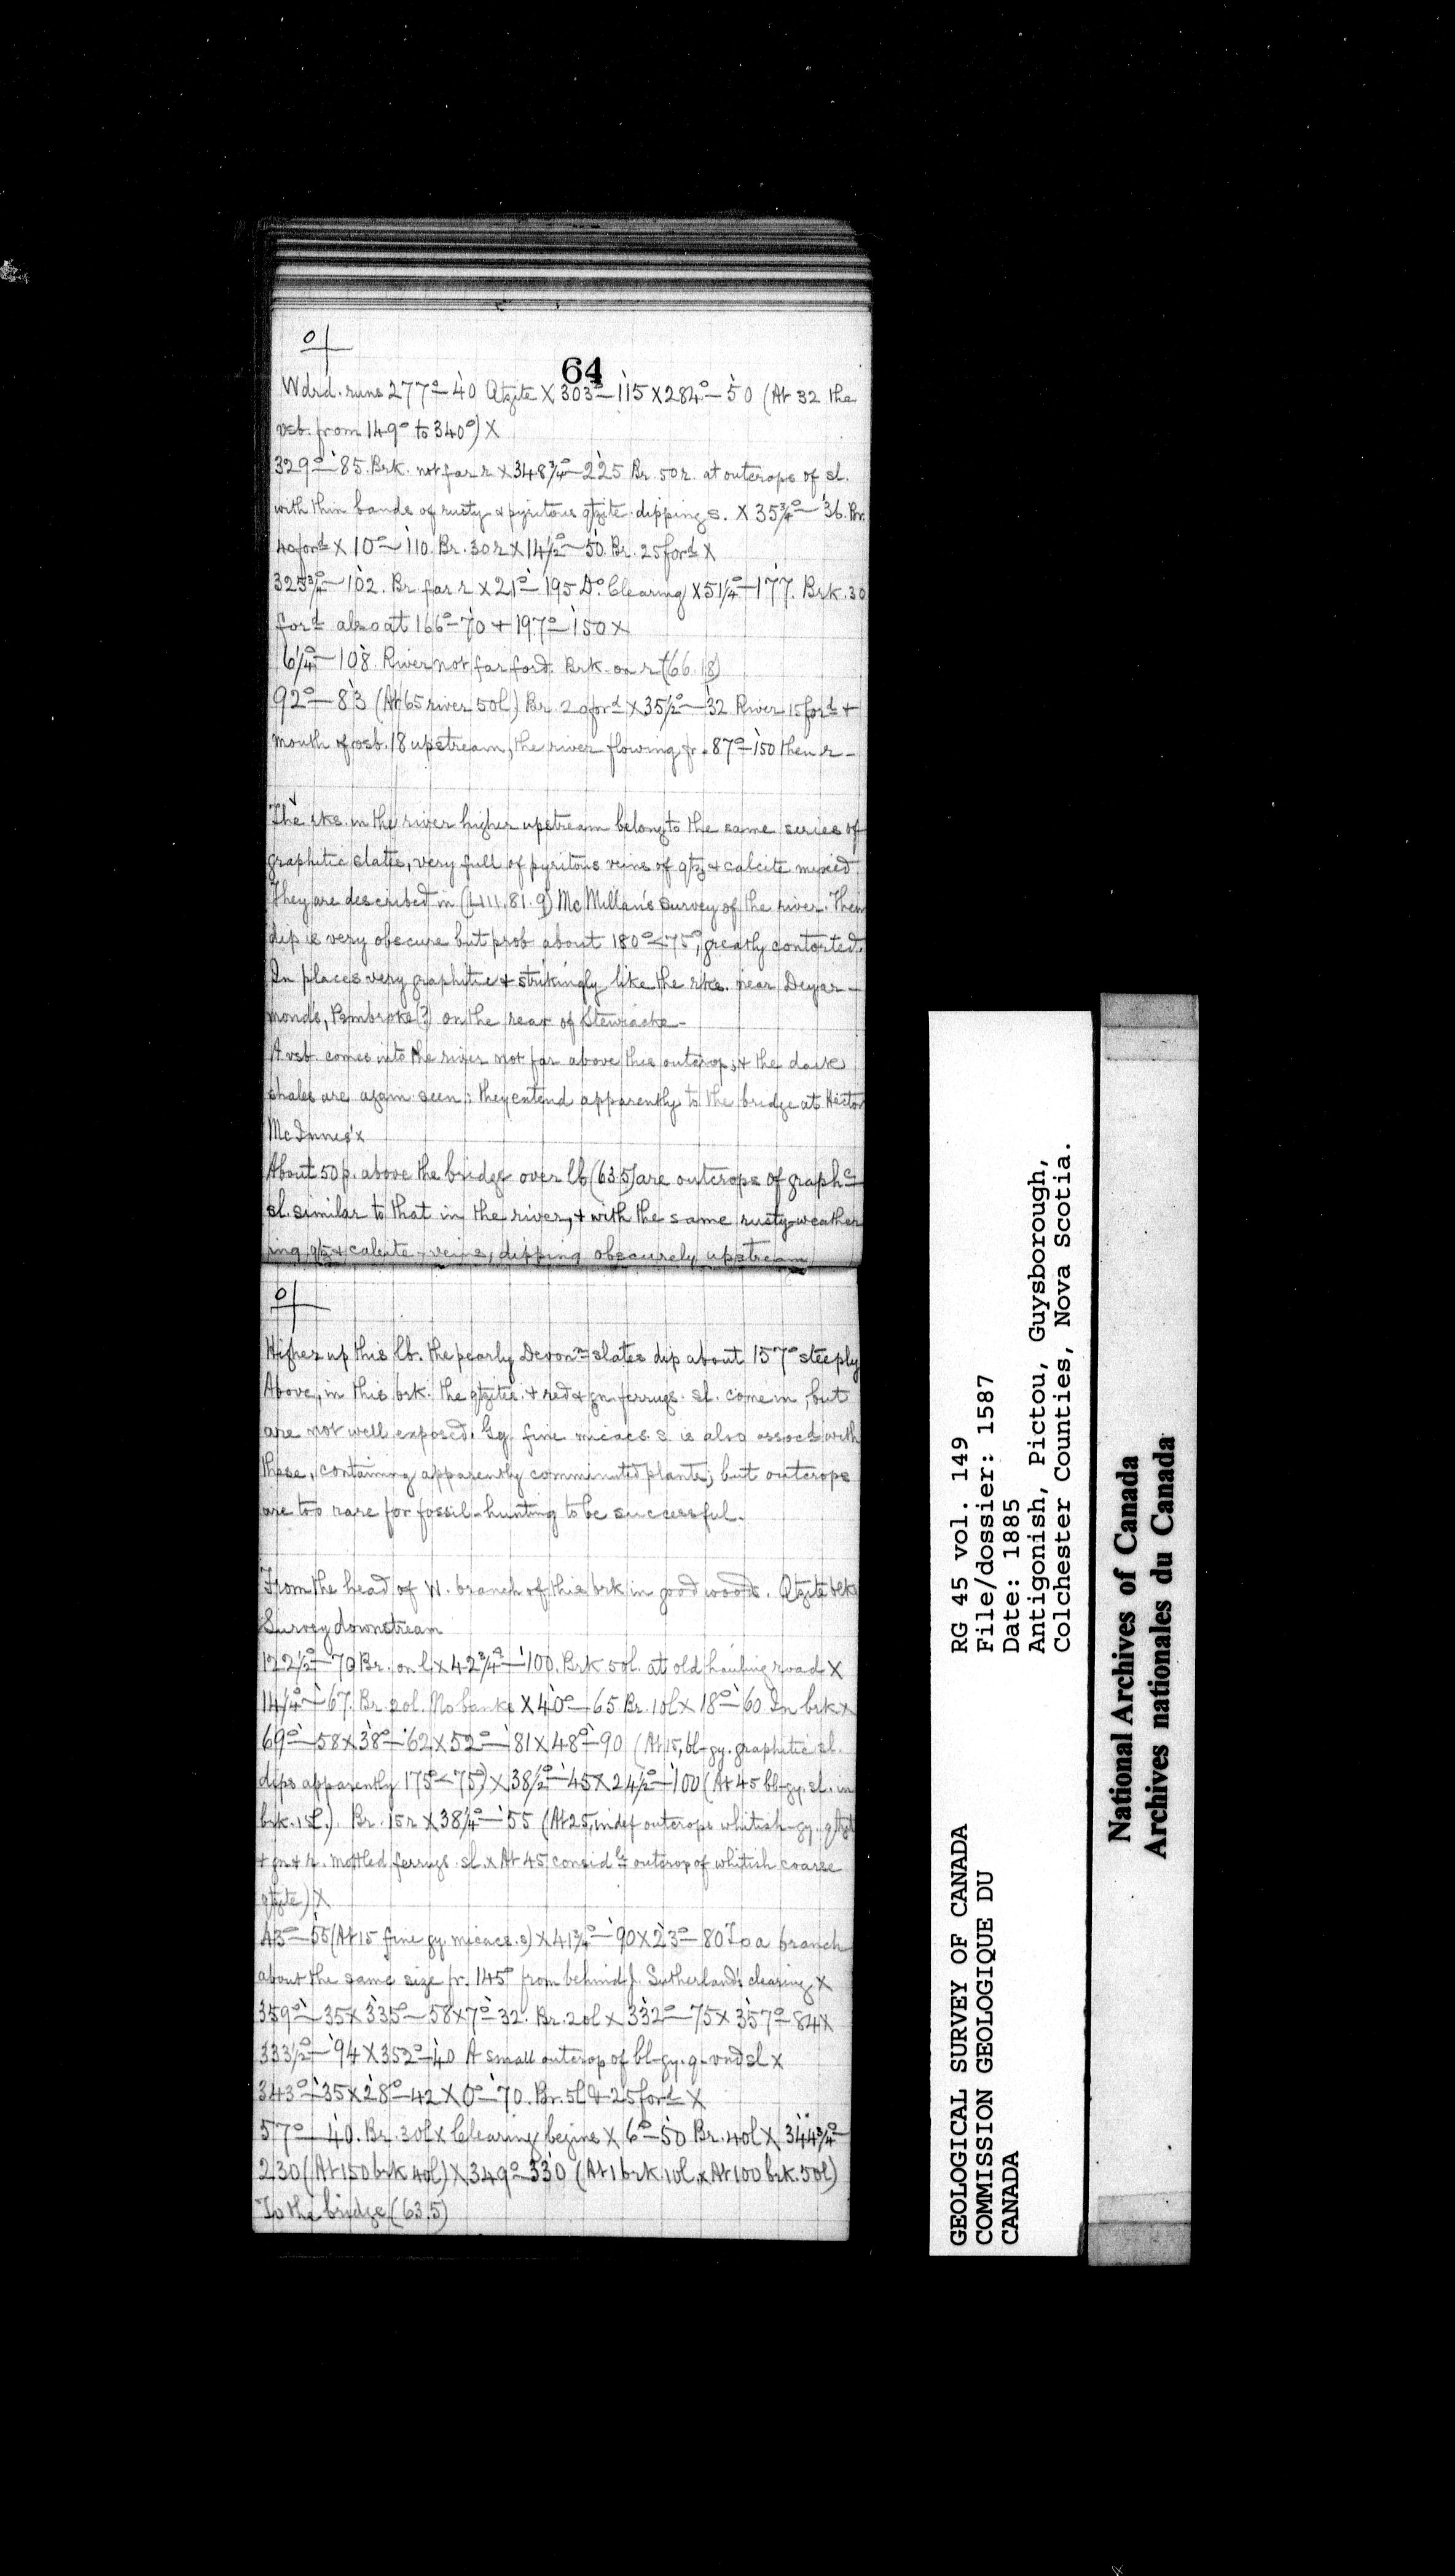 64
Wdrd. runs 277° – 40 Qtzite X 303° – 115 X 284° – 50 (At 32 the
vsb. from 149° to 340°) X
329° – 85. Brk. not far r X 348¾° – 225 Br. 50 r. at outcrops of sl.
with thin bands of rusty & pyritous qtzite dipping s. X 35¾° – 36. Br.
40 ford X 10° – 110. Br. 30 r X 14½° – 50. Br. 25 ford X
325¾° – 102. Br. far r X 21° – 195 Do. Clearing X 51¼° – 177. Brk. 30
ford also at 166° – 70 + 197° – 150 X
6¼° – 108. River not far ford. Brk. on r (66.18)
92° – 83 (At 65 river 50 l.) Br. 20 ford X 35½° – 32 River 15 ford +
mouth of vsb. 18 upstream, the river flowing fr. 87° – 150 then r –
The rks. in the river higher upstream belong to the same series of
graphitic slates, very full of pyritous veins of qtz & calcite mixed.
They are described in (L111.81.9) McMillan's survey of the river. Their
dip is very obscure but prob about 180° < 75°, greatly contorted.
In places very graphitic & strikingly like the rks. near Deyar –
mond's, Pembroke (?) on the rear of Stewiacke –
A vsb. comes into the river not far above this outcrop, & the dark
shales are again seen; they extend apparently to the bridge at Hector
McInnes' X
About 50 p. above the bridge over lb (63.5) are outcrops of graphc
sl. similar to that in the river, & with the same rusty-weather
ing qtz & calcite – veins, dipping obscurely upstream
Higher up this lb. the pearly Devonn slates dip about 157° steeply
Above, in this brk. the qtzites & red & gn. ferrugs. sl. come in, but
are not well exposed. Gy. fine micacs. s. is also assocd with
these, containing apparently comminuted plants; but outcrops
are too rare for fossil-hunting to be successful.
From the head of W. branch of this brk in good woods. Qtzite blks
Survey downstream
122½° – 70 Br. on l X 42¾° – 100. Brk 50 l. at old hauling road X
14¼° – 67. Br. 20 l. No banks X 40° – 65 Br. 10 l X 18° – 60 In brk X
69° – 58 X 38° – 62 X 52° – 81 X 48° – 90 (At 15, bl-gy. graphitic sl.
dips apparently 175° < 75°) X 38½° – 45 X 24½° – 100 (At 45 bl-gy. sl. in
brk. 15 l.). Br. 15 r X 38¼° – 55 (At 25, indef outcrops whitish-gy. qtzite
+ gn & r. mottled ferrugs. sl. X At 45 considble outcrop of whitish coarse
qtzite) X
43° – 55 (At 15 fine gy. micacs. s) X 41¾° – 90 X 23° – 80 To a branch
about the same size fr. 145° from behind J. Sutherland's clearing X
359° – 35 X 335° – 58 X 7° – 32. Br. 20 l X 332° – 75 X 357° – 84 X
333½° – 94 X 352° – 40 A small outcrop of bl-gy. q-vnd sl X
343° – 35 X 28° – 42 X 0° – 70. Br. 5 l & 25 ford X
57° – 40. Br. 30 l X Clearing begins X 6° – 50 Br. 40 l X 344¾° –
230 (At 150 brk 40 l) X 349° – 330 (At 1 brk 10 l X At 100 brk. 50 l)
To the bridge (63.5)
GEOLOGICAL SURVEY OF CANADA
COMMISSION GEOLOGIQUE DU
CANADA
RG 45 vol. 149
File/dossier: 1587
Date: 1885
Antigonish, Pictou, Guysborough,
Colchester Counties, Nova Scotia.
National Archives of Canada
Archives nationales du Canada